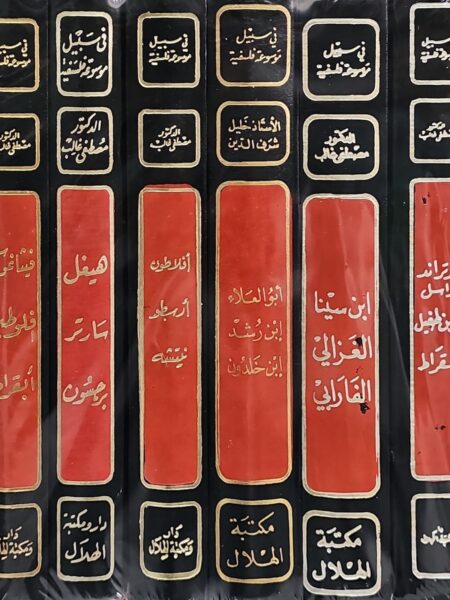 في سبيل
موسوعة فلسفية
الدكتور
مصطفى غالب
ابن سينا
الغزالي
الفارابي
مكتبة
الهلال
في سبيل
موسوعة فلسفية
الأستاذ خليل
شرف الدين
أبو العلاء
ابن رشد
ابن خلدون
مكتبة
الهلال
في سبيل
موسوعة فلسفية
الدكتور
مصطفى غالب
أفلاطون
أرسطو
نيتشه
دار
ومكتبة الهلال
في سبيل
موسوعة فلسفية
الدكتور
مصطفى غالب
هيغل
سارتر
برجسون
دار ومكتبة
الهلال
في سبيل
موسوعة فلسفية
الدكتور
مصطفى غالب
دار
ومكتبة الهلال